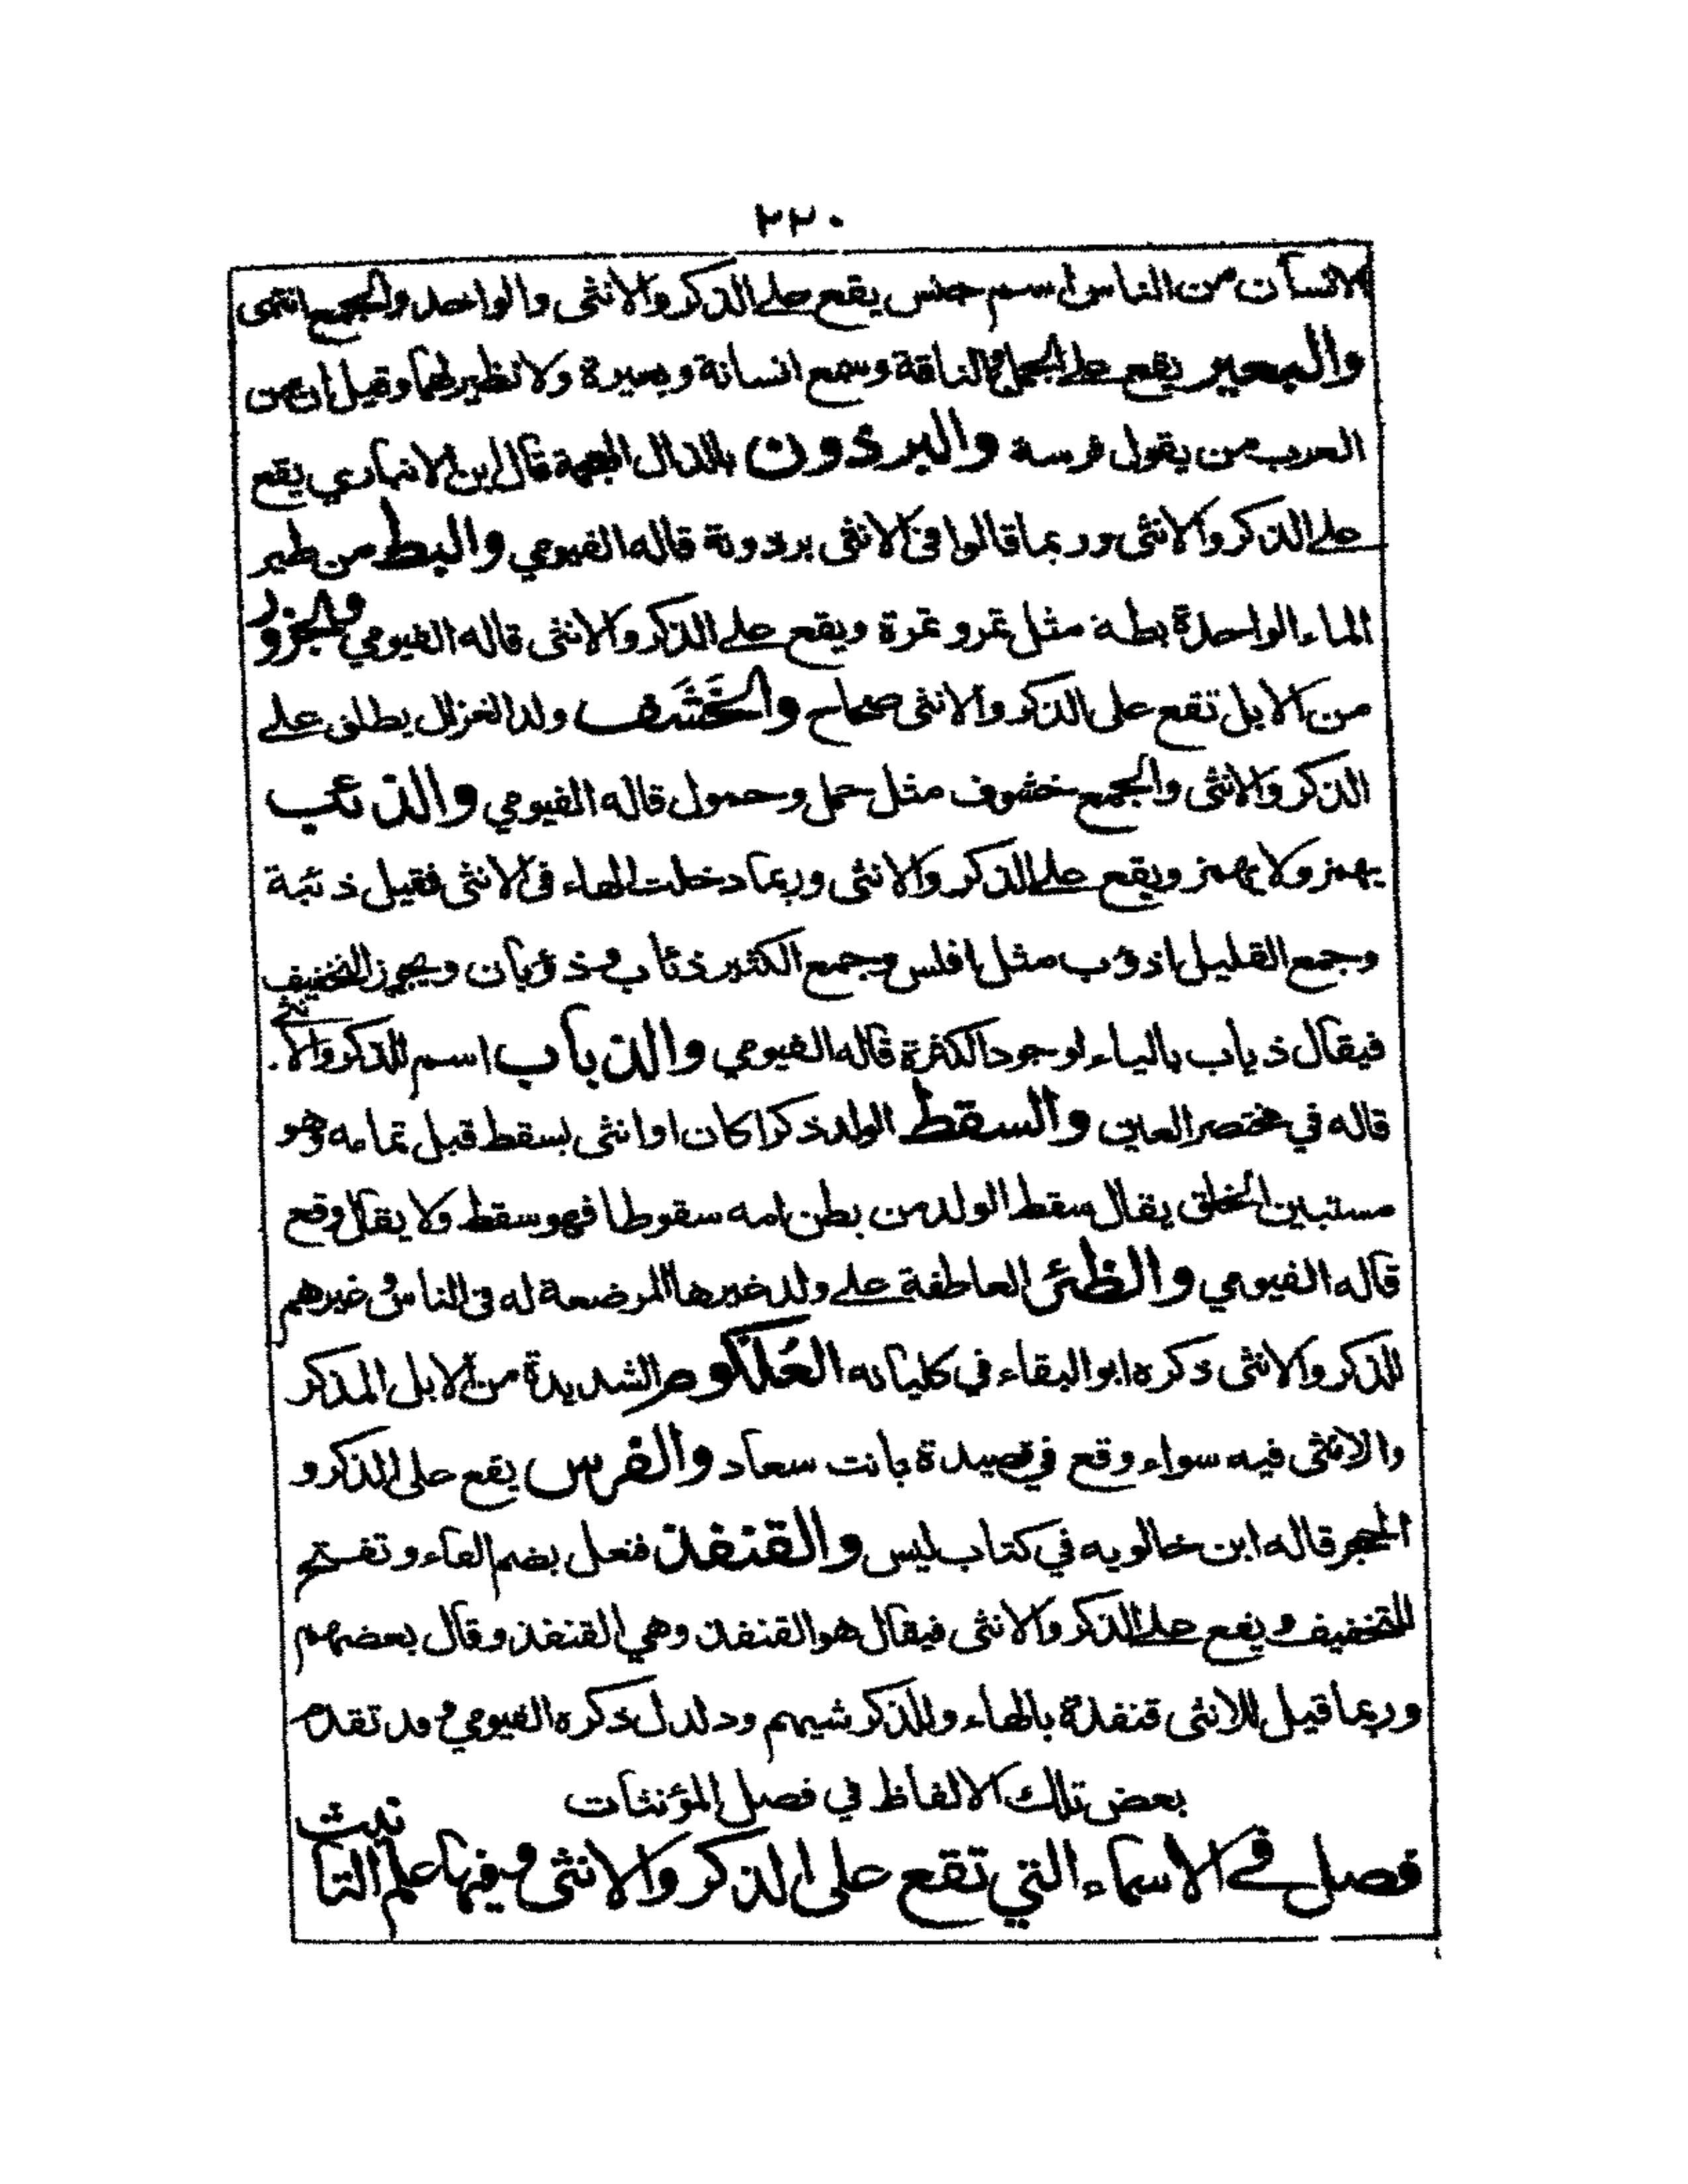 ٢٢٠
الانسان من الناس اسم جنس يقع على الذكر والانثى والواحد والجمع انتهى
والبعير يقع على الجمل والناقة وسمع انسانة وبعيرة ولا نظير لهما وقيل ان من
العرب من يقول فرسة والبرذون بالذال المعجمة قال ابن الانباري يقع
على الذكر والانثى وربما قالوا في الانثى برذونة قاله الفيومي والبط من طير
الماء الواحدة بطة مثل تمر وتمرة ويقع على الذكر والانثى قاله الفيومي والجزور
من الابل تقع على الذكر والانثى صحاح والخَشَف ولد الغزال يطلق على
الذكر والانثى والجمع خشوف مثل حمل وحمول قاله الفيومي والذئب
يهمز ولا يهمز ويقع على الذكر والانثى وربما دخلت الهاء في الانثى فقيل ذئبة
وجمع القليل اذؤب مثل افلس وجمع الكثير ذئاب وذؤبان ويجوز التخفيف
فيقال ذياب بالياء لوجود الكثرة قاله الفيومي والذباب اسم للذكر والانثى
قاله في مختصر العين والسقط الولد ذكرا كان او انثى يسقط قبل تمامه وهو
مستبين الخلق يقال سقط الولد من بطن امه سقوطا فهو سقط ولا يقال وقع
قاله الفيومي والظئر العاطفة على ولد غيرها المرضعة له في الناس وغيرهم
للذكر والانثى ذكره ابو البقاء في كلياته العُلكوم الشديدة من الابل المذكر
والانثى فيه سواء وقع في قصيدة بانت سعاد والفرس يقع على الذكر و
الحجر قاله ابن خالويه في كتاب ليس والقنفذ فنعل بضم الفاء وتفتح
للتخفيف ويقع على الذكر والانثى فيقال هو القنفذ وهي القنفذ وقال بعضهم
وربما قيل للانثى قنفذة بالهاء وللذكر شيهم ودلدل ذكره الفيومي وقد تقدم
بعض تلك الالفاظ في فصل المؤنثات
فصل في الاسماء التي تقع على الذكر والانثى وفيها علم التانيث